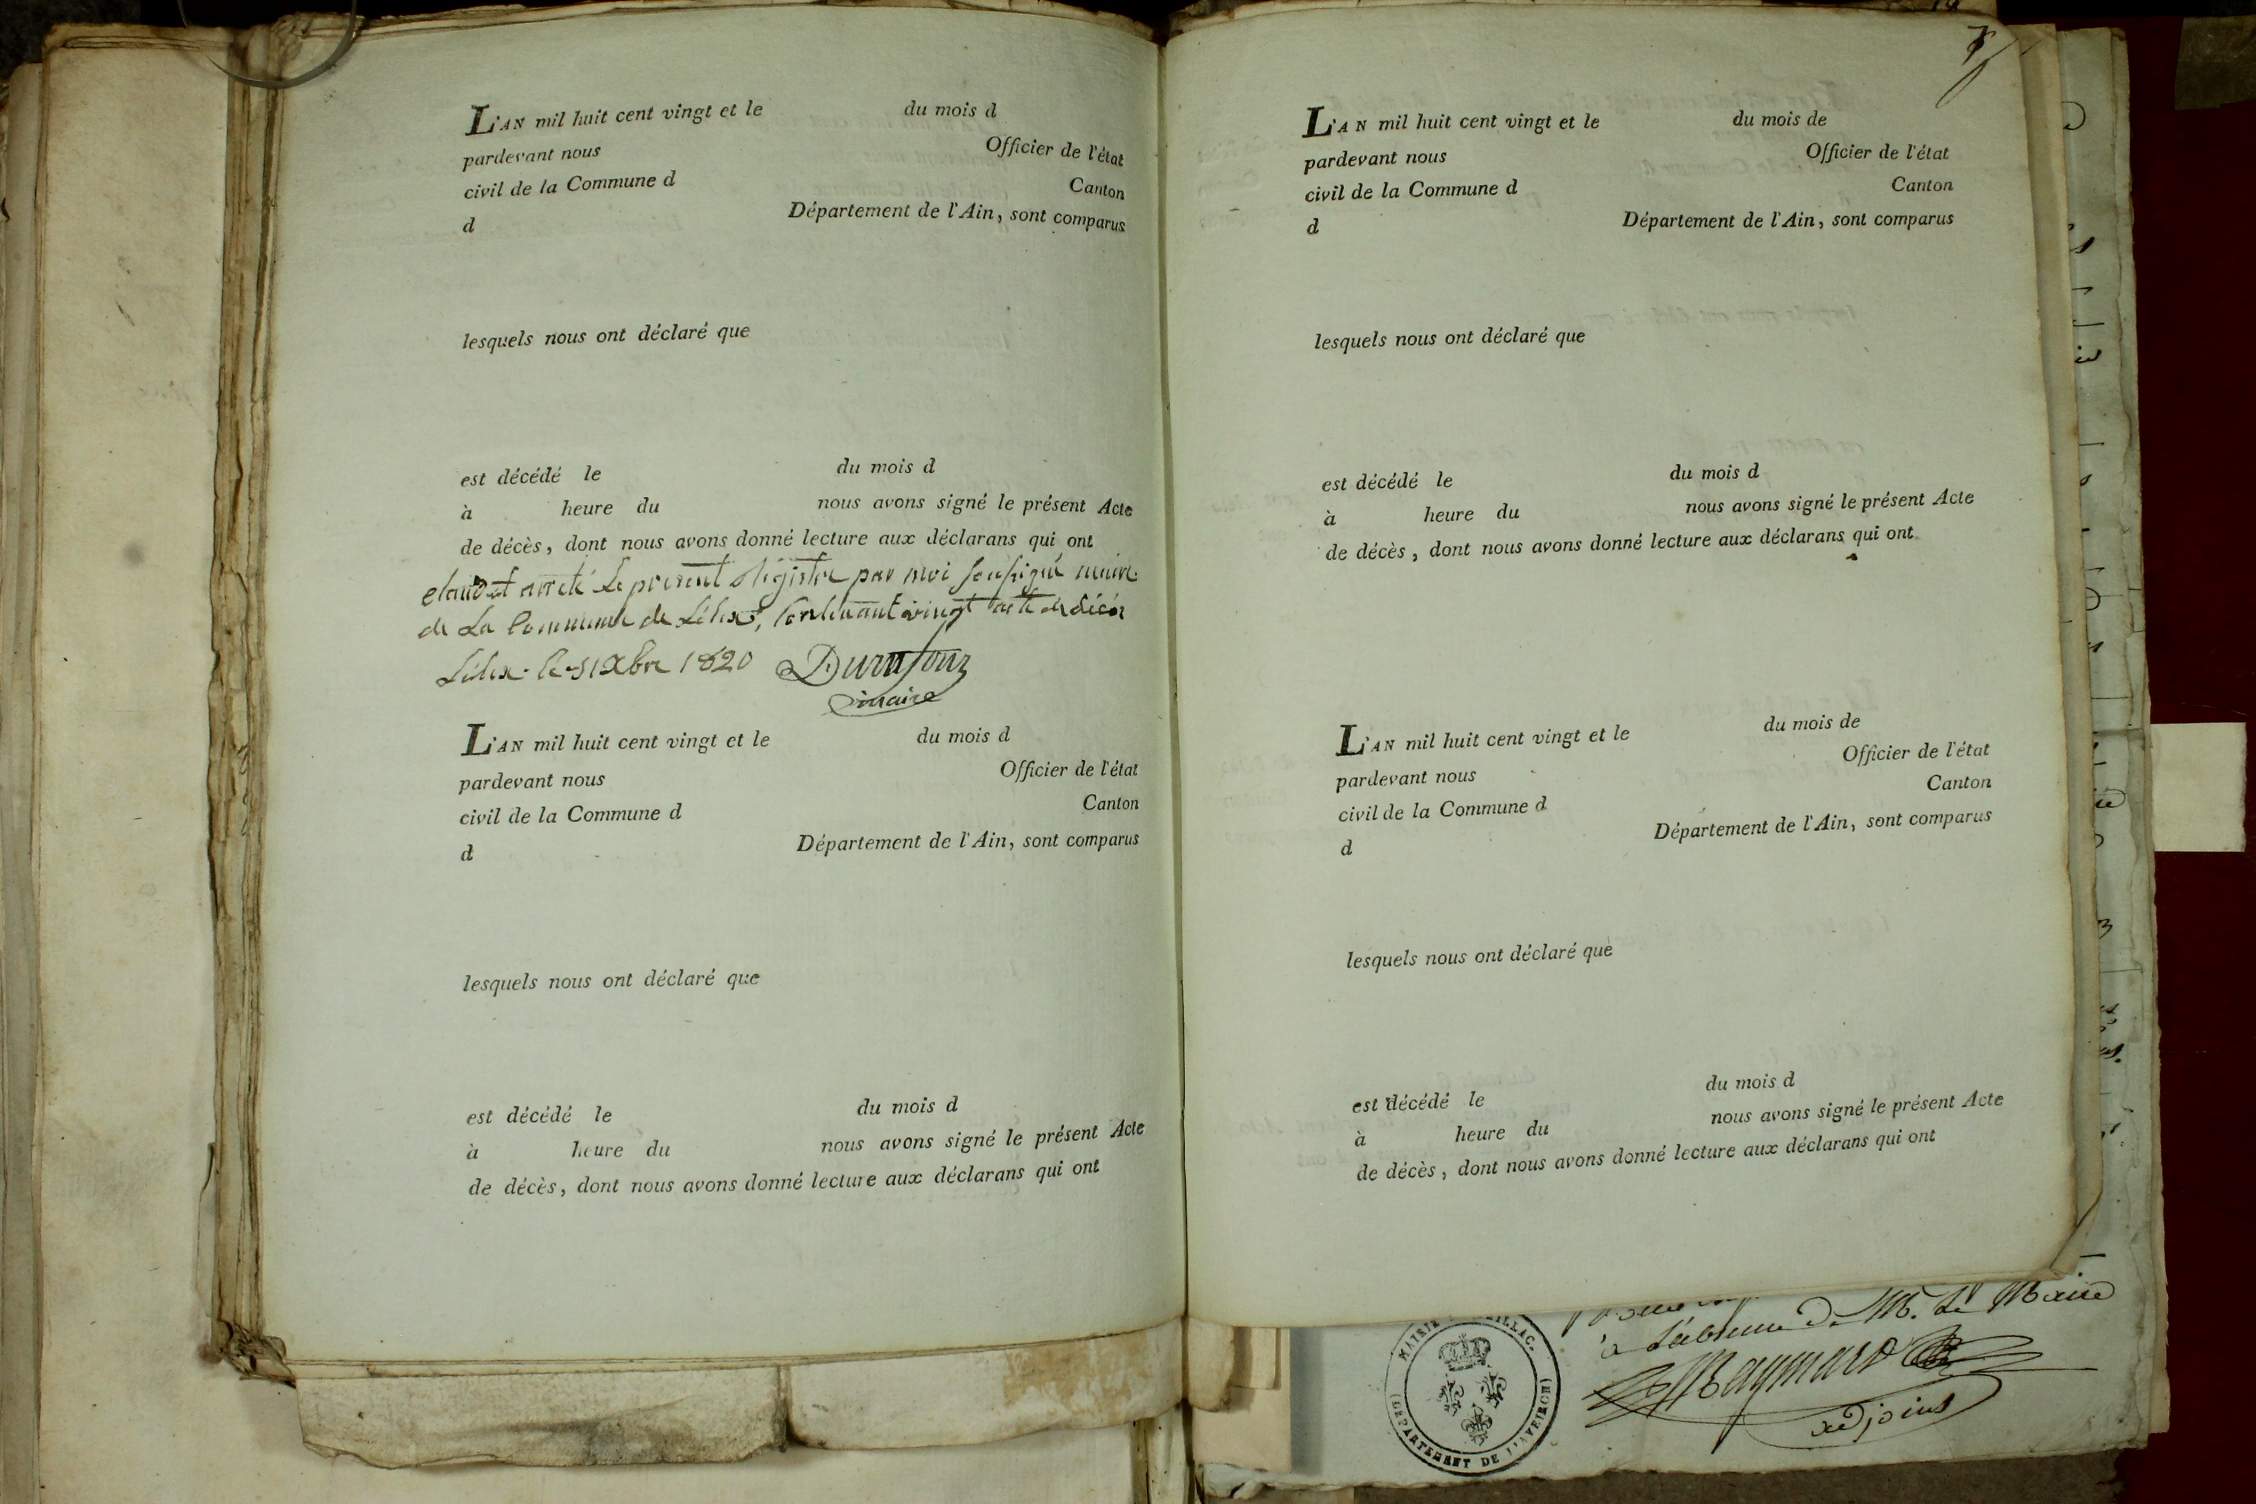 L'AN mil huit cent vingt et le du mois d
pardevant nous Officier de l'état
civil de la Commune d Canton
d Département de l'Ain, sont comparus
lesquels nous ont déclaré que
est décédé le du mois d
à heure du nous avons signé le présent Acte
de décès, dont nous avons donné lecture aux déclarans qui ont
clos et arrêté le présent Régistre par moi soussigné maire
de La Commune de Lélex, Contenant vingt acte de décès
Lélex le 31 Xbre 1820
maire
L'AN mil huit cent vingt et le du mois d
pardevant nous Officier de l'état
civil de la Commune d Canton
d Département de l'Ain, sont comparus
lesquels nous ont déclaré que
est décédé le du mois d
à heure du nous avons signé le présent Acte
de décès, dont nous avons donné lecture aux déclarans qui ont
7
L'AN mil huit cent vingt et le du mois de
pardevant nous Officier de l'état
civil de la Commune d Canton
d Département de l'Ain, sont comparus
lesquels nous ont déclaré que
est décédé le du mois d
à heure du nous avons signé le présent Acte
de décès, dont nous avons donné lecture aux déclarans qui ont
L'AN mil huit cent vingt et le du mois de
pardevant nous Officier de l'état
civil de la Commune d Canton
d Département de l'Ain, sont comparus
lesquels nous ont déclaré que
est décédé le du mois d
à heure du nous avons signé le présent Acte
de décès, dont nous avons donné lecture aux déclarans qui ont
à l'absence de M. Le Maire
Raymard
adjoint
MAIRIE
DÉPARTEMENT DE L'AVEIRON